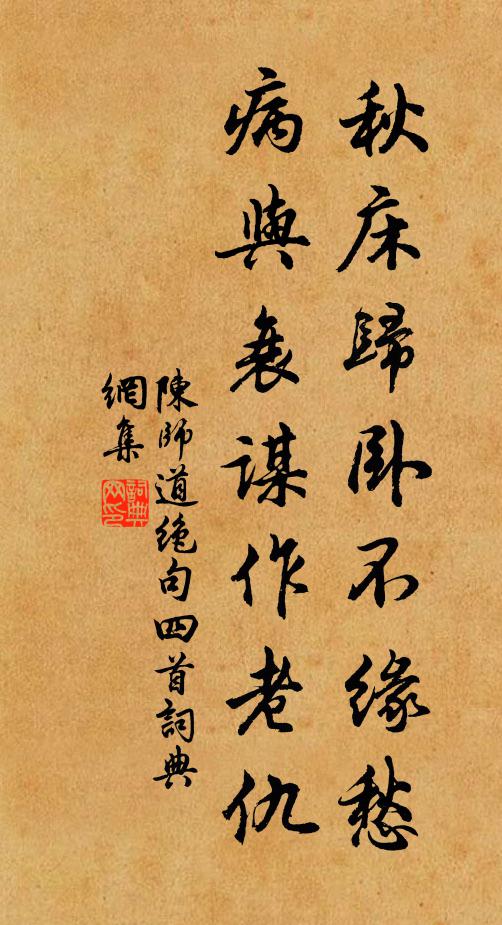 秋床歸卧不緣愁
病與衰謀作老仇
陳師道絶句四首詞典
網集
詞典
网印